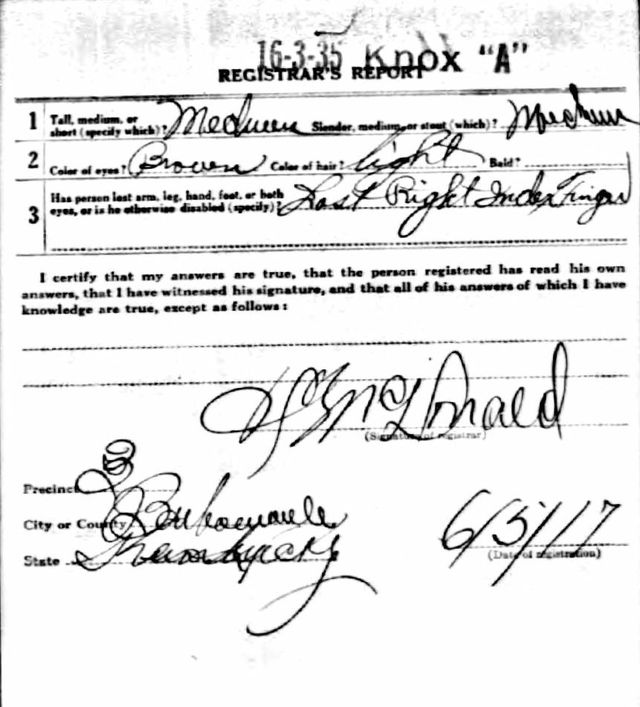 16-3-35 Knox "A"
REGISTRAR'S REPORT
1 Tall, medium, or short (specify which)? Medium Slender, medium, or stout (which)? Medium
2 Color of eyes? Brown Color of hair? light Bald?
3 Has person lost arm, leg, hand, foot, or both eyes, or is he otherwise disabled (specify)? Lost Right Index Finger
I certify that my answers are true, that the person registered has read his own
answers, that I have witnessed his signature, and that all of his answers of which I have
knowledge are true, except as follows:
McDonald
(Signature of registrar)
Precinct
City or County
State Kentucky
6/5/17
(Date of registration)